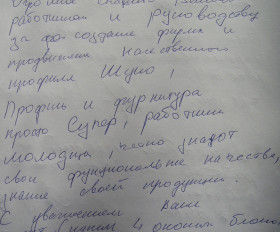 работникам и руководству
за фа создание фирмы и
продвижения качественного
профиля
Профиль и фурнитура
просто Супер, работники
молодцы, четко знают
свои функциональные качества,
знание своей продукции.
С уважением Ваш
купил 4 оконных блока,